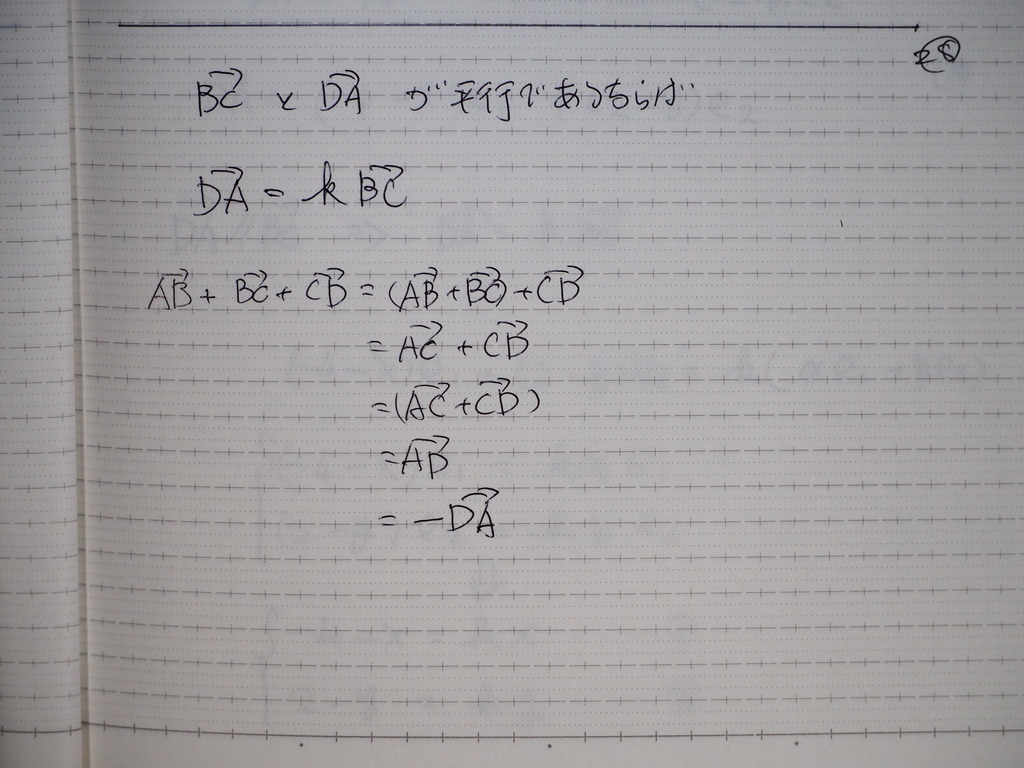 BC→ と DA→ が平行であるならば
DA→ = k BC→
AB→ + BC→ + CD→ = (AB→ + BC→) + CD→
= AC→ + CD→
= (AC→ + CD→)
= AD→
= −DA→